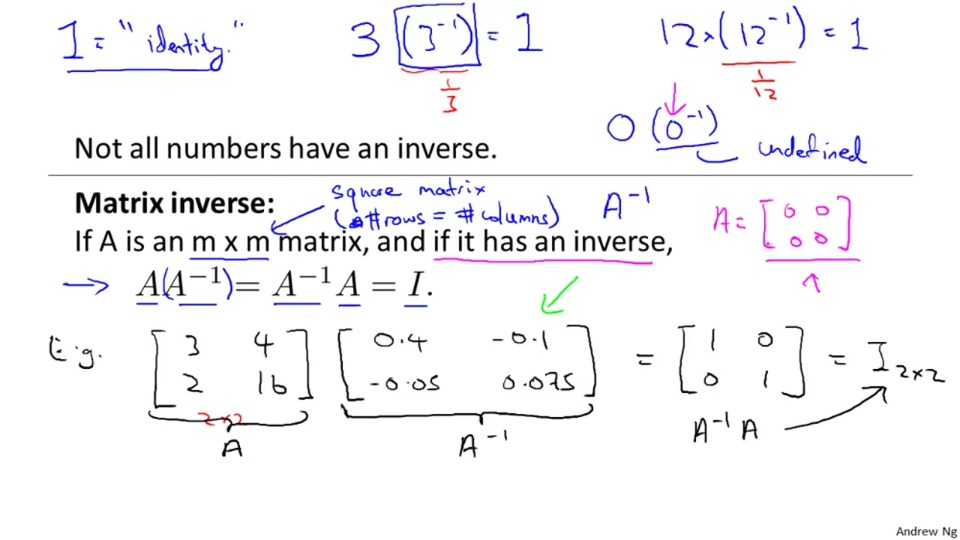 1 = "identity."
3 (3⁻¹) = 1
1/3
12 × (12⁻¹) = 1
1/12
0 (0⁻¹)
undefined
Not all numbers have an inverse.
Matrix inverse:
square matrix
(#rows = #columns)
A⁻¹
A = [0 0
0 0]
If A is an m x m matrix, and if it has an inverse,
→ A(A⁻¹) = A⁻¹A = I.
E.g. [3 4 [0.4 -0.1 = [1 0 = I 2×2
2 16] -0.05 0.075] 0 1]
2×2
A
A⁻¹
A⁻¹A
Andrew Ng